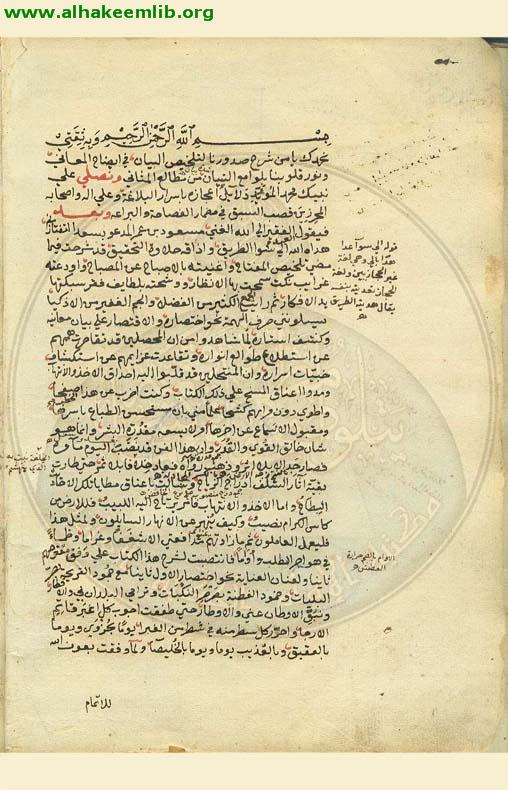 www.alhakeemlib.org
بسم الله الرحمن الرحيم وبه ثقتي
نحمدك يا من شرح صدورنا لتلخيص البيان في ايضاح المعاني
ونور قلوبنا بلوامع التبيان من مطالع المثاني ونصلي على
نبيك محمد المؤيد دلايل اعجازه باسرار البلاغة وعلى اله واصحابه
المحرزين قصب السبق في مضمار الفصاحة والبراعة وبعد
فيقول الفقير الى الله الغني مسعود بن عمر المدعو بسعد التفتازاني
هداه الله الى سوا الطريق واذاقه حلاوة التحقيق قد شرحت فيما
مضى تلخيص المفتاح واغنيته بالاصباح عن المصباح واودعته
غرايب نكت سمحت بها الانظار ووشحته بلطايف فقر سبكتها
يد الافكار ثم رايت الكثير من الفضلا والجم الغفير من الاذكيا
يسيلونني صرف الهمة نحو اختصاره والاقتصار على بيان معانيه
وكشف استاره لما شاهدوا من ان المحصلين قد تقاصرت هممهم
عن استطلاع طوالع انواره وتقاعدت عزايمهم عن استكشاف
خبيات اسراره وان المنتحلين قد قلبوا اليه احداق الاخذ والانتها
ومدوا اعناق المسخ على ذلك الكتاب وكنت اضرب عن هذا صفحا
واطوي دون مرامهم كشحا علما مني بان مستحسن الطباع باسرها
ومقبول الاسماع عن اخرها امر لا يسعه مقدرة البشر وانما هو
شان خالق القوي والقدر وان هذا الفن قد نضب اليوم ماوه
فصار جدالا بلا اثر وذهب رواه فعاد خلافا بلا ثمر حتى طارت
بقية اثار السلف ادراج الرياح وسالت باعناق مطايا تلك الاحاد
البطاح واما الاخذ والانتهاب فامر يرتاح له اللبيب فللارض من
كاس الكرام نصيب وكيف ينهر عن الانهار السايلون ولمثل هذا
فليعمل العاملون ثم ما زادتهم مدافعتي الا شغفا وغراما وظما
في هواجر الطلب واواما فانتصبت لشرح هذا الكتاب على وفق مقترحهم
ثانيا ولعنان العناية نحو اختصار الاول ثانيا مع جمود القريحة بصر
البليات وخمود الفطنة بصرصر النكبات وترامي البلدان بي والاقطار
ونبو الاوطان عني والاوطار حتى طفقت اجوب كل اغبر قاتم
الارجا واحرر كل سطر منه في شطر من الغبرا يوما بحزوى ويوما
بالعقيق وبالعذيب يوما ويوما بالخليصا ولما وفقت بعون الله
للاتمام
قوله الى سوا